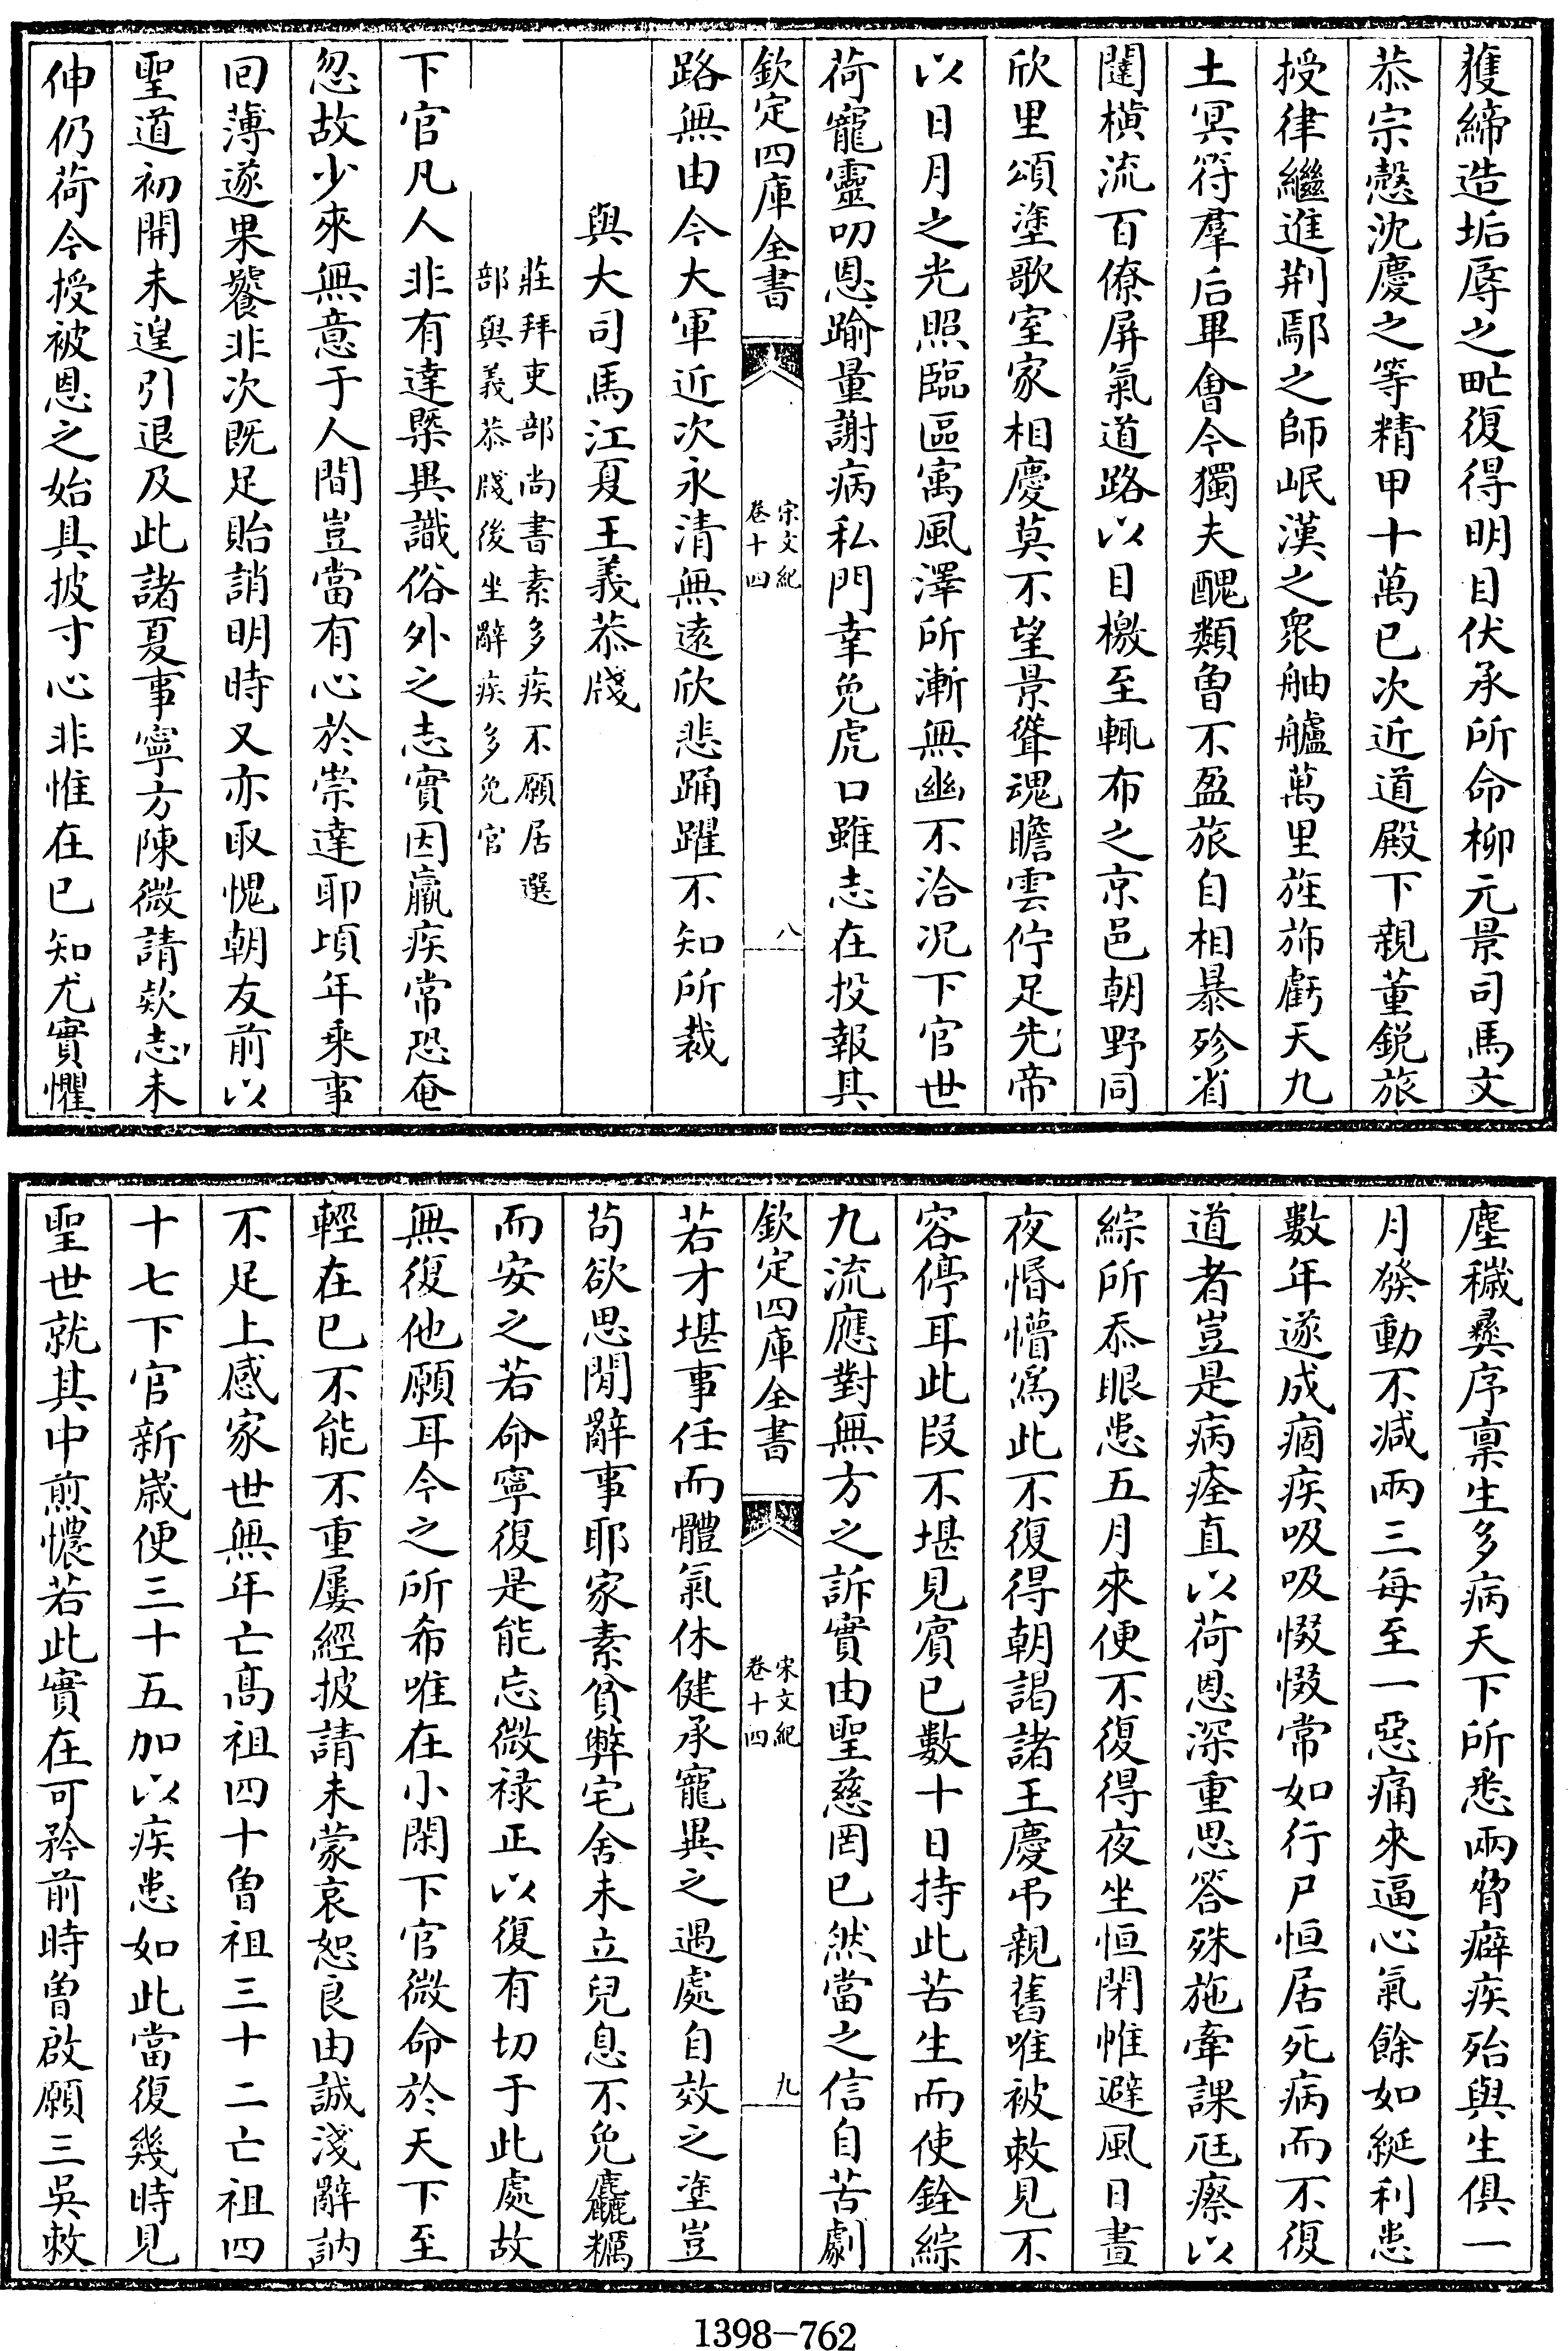 獲締造垢辱之甿復得明目伏承所命柳元景司馬文
恭宗慤沈慶之等精甲十萬已次近道殿下親董鋭旅
授律繼進荆鄢之師岷漢之衆舳艫萬里旌旆虧天九
土冥符羣后畢會今獨夫醜類曾不盈旅自相暴殄省
闥横流百僚屏氣道路以目檄至輒布之京邑朝野同
欣里頌塗歌室家相慶莫不望景聳魂瞻雲佇足先帝
以日月之光照臨區寓風澤所漸無幽不洽况下官世
荷寵靈叨恩踰量謝病私門幸免虎口雖志在投報其
欽定四庫全書
宋文紀
卷十四
八
路無由今大軍近次永清無遠欣悲踊躍不知所裁
與大司馬江夏王義恭牋
莊拜吏部尚書素多疾不願居選
部與義恭牋後坐辭疾多免官
下官凡人非有達槩異識俗外之志實因羸疾常恐奄
忽故少來無意于人間豈當有心於崇達耶頃年乗事
回薄遂果饕非次既足貽誚明時又亦取愧朝友前以
聖道初開未遑引退及此諸夏事寧方陳微請欵志未
伸仍荷今授被恩之始具披寸心非惟在已知尤實懼
塵穢彞序稟生多病天下所悉兩脅癖疾殆與生俱一
月發動不減兩三每至一惡痛來逼心氣餘如綖利患
數年遂成痼疾吸吸惙惙常如行尸恒居死病而不復
道者豈是病痊直以荷恩深重思答殊施牽課尫瘵以
綜所忝眼患五月來便不復得夜坐恒閉帷避風日晝
夜惛懵為此不復得朝謁諸王慶弔親舊唯被敕見不
容停耳此段不堪見賓已數十日持此苦生而使銓綜
九流應對無方之訴實由聖慈罔已然當之信自苦劇
欽定四庫全書
宋文紀
卷十四
九
若才堪事任而體氣休健承寵異之遇處自效之塗豈
苟欲思閒辭事耶家素貧弊宅舍未立兒息不免麤糲
而安之若命寧復是能忘微禄正以復有切于此處故
無復他願耳今之所希唯在小閑下官微命於天下至
輕在已不能不重屢經披請未蒙哀恕良由誠淺辭訥
不足上感家世無年亡高祖四十曾祖三十二亡祖四
十七下官新嵗便三十五加以疾患如此當復幾時見
聖世就其中煎懷若此實在可矜前時曾啟願三吳敕
1398-762